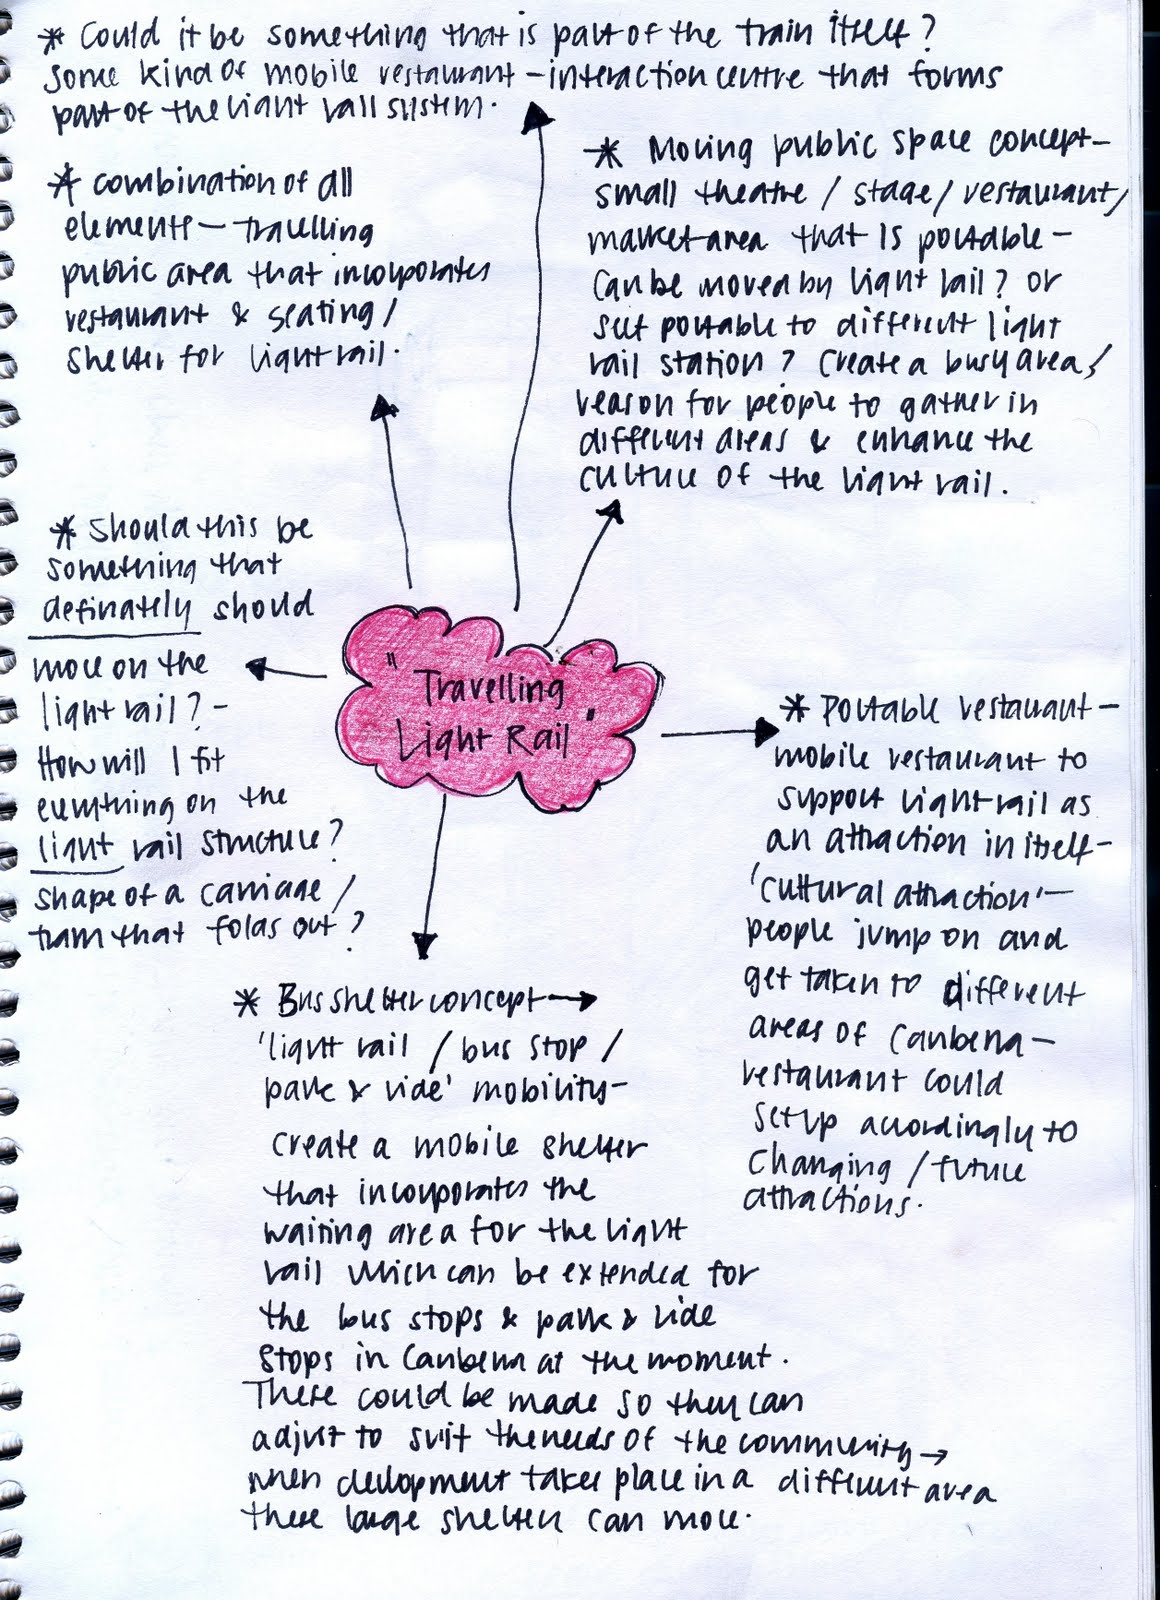 * Could it be something that is part of the train itself?
some kind of mobile restaurant – interaction centre that forms
part of the light rail system.
* combination of all
elements – travelling
public area that incorporates
restaurant & seating /
shelter for light rail.
* Moving public space concept –
small theatre / stage / restaurant /
market area that is portable –
can be moved by light rail? or
set portable to different light
rail station? Create a busy area /
reason for people to gather in
different areas & enhance the
culture of the light rail.
* Should this be
something that
definately should
move on the
light rail? –
How will I fit
everything on the
light rail structure?
shape of a carriage /
tram that folds out?
"Travelling
Light Rail"
* Portable restaurant –
mobile restaurant to
support light rail as
an attraction in itself –
'cultural attraction' –
people jump on and
get taken to different
areas of Canberra –
restaurant could
set up accordingly to
changing / future
attractions.
* Bus shelter concept →
'light rail / bus stop /
park & ride' mobility –
create a mobile shelter
that incorporates the
waiting area for the light
rail which can be extended for
the bus stops & park & ride
stops in Canberra at the moment.
These could be made so they can
adjust to suit the needs of the community →
when development takes place in a different area
these large shelters can move.